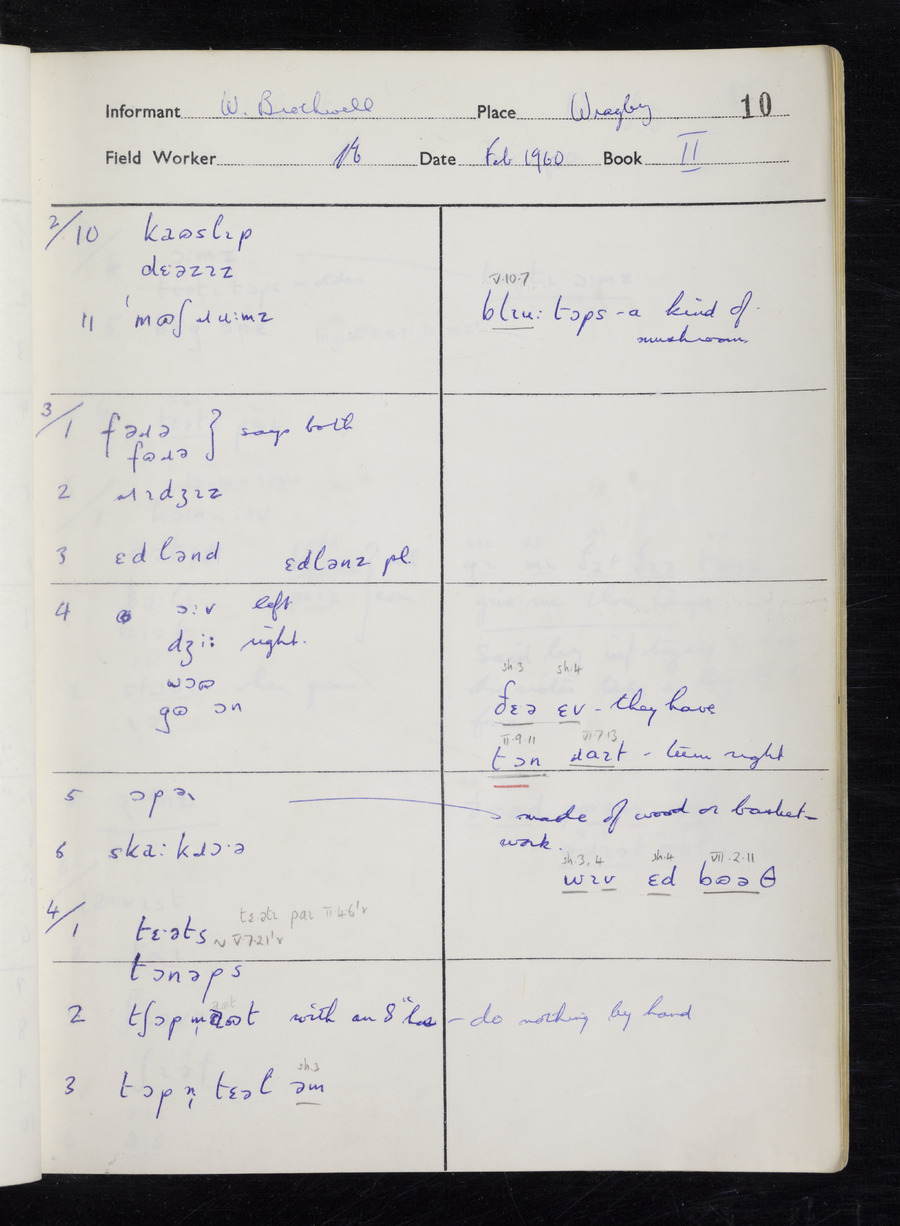 Informant W. Brothwell Place Wragby 10
Field Worker Date Feb 1960 Book II
2/10 kaʊslɪp
dɛəzɪz
V.10.7
11 ˈmʊʃɹuːmz blɪuːtɔps - a kind of
mushroom.
3/1 fəɹə } says both
fʊɹə
2 ɹɪdʒɪz
3 ɛdlənd ɛdlənz pl.
4 ɔːv left
dʒiː right.
wɔʊ
gʊ ɔn
sh.3 sh.4
ðɛə ɛv - they have
II.9.11 VI.7.13
tɔn ɹaɪt - turn right
5 ɔpə made of wood or basket-
work.
6 skaːkɹɔˑə
sh.3,4 sh.4 VII.2.11
wɪv ɛd bʊəθ
4/1 tɛˑəts tɛətɪ par II.4.6'v
~ V.7.21'v
tɔnəps
2 tʃɔp aʊt with an 8" hoe - do nothing by hand
sh.3
3 tɔp n̩ tɛəl əm